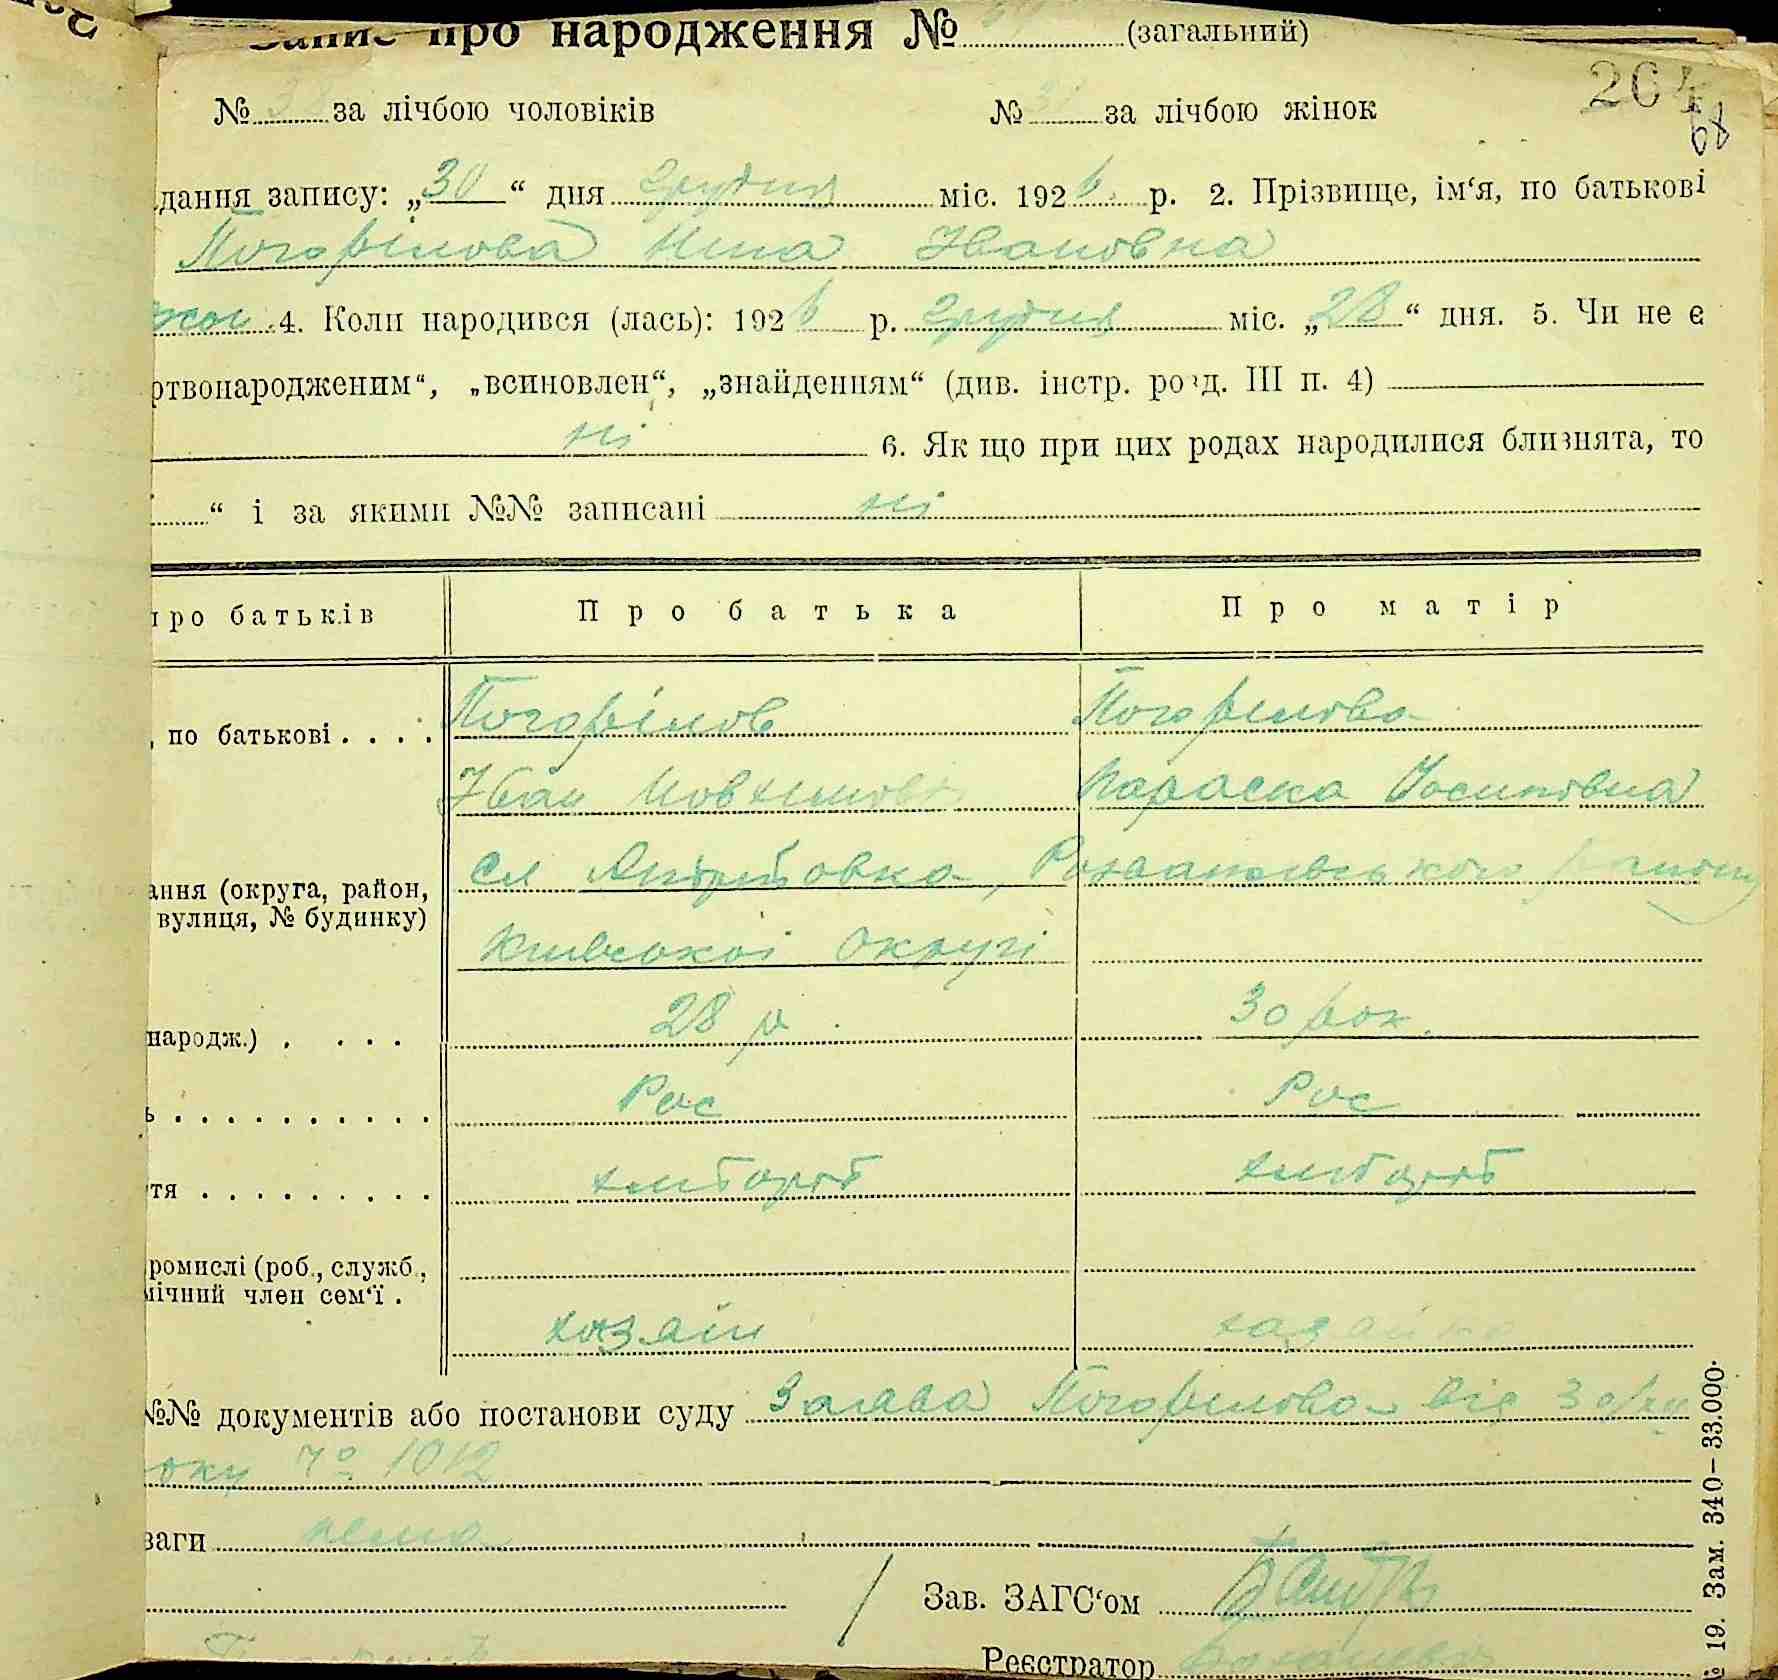 Запис про народження № (загальний)
264
№ за лічбою чоловіків № за лічбою жінок
68
дання запису: „30“ дня грудня міс. 1926 р. 2. Прізвище, ім‘я, по батькові
Погорілова Нина Ивановна
4. Коли народився (лась): 1926 р. грудня міс. „28“ дня. 5. Чи не є
ртвонародженим“, „всиновлен“, „знайденням“ (див. інстр. розд. III п. 4)
ні 6. Як що при цих родах народилися близнята, то
“ і за якими №№ записані ні
про батьків Про батька Про матір
, по батькові Погорілов Погорілова
Иван Параска Йосиповна
ання (округа, район, Сл району
вулиця, № будинку)
Київської округі
народж.) 28 р 30 рок.
ь Рос Рос
тя хлібороб хлібороб
ромислі (роб., служб.,
мічний член сем‘ї .
хозяїн хазяйка
№№ документів або постанови суду Заява Погорілова від 30/XII
року № 1012
ваги нема
Зав. ЗАГС‘ом
Реєстратор
19. Зам. 340–33.000.